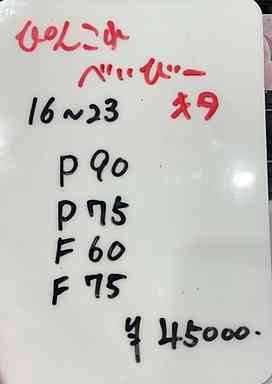 ぴんこれ
べいびー
16~23 キタ
P 90
P 75
F 60
F 75
¥ 45000.